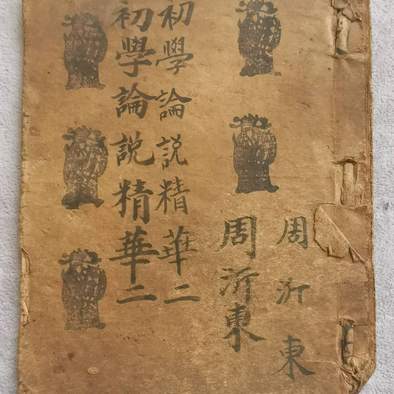 周沂東
周沂東
初學論説精華二
初學論説精華二